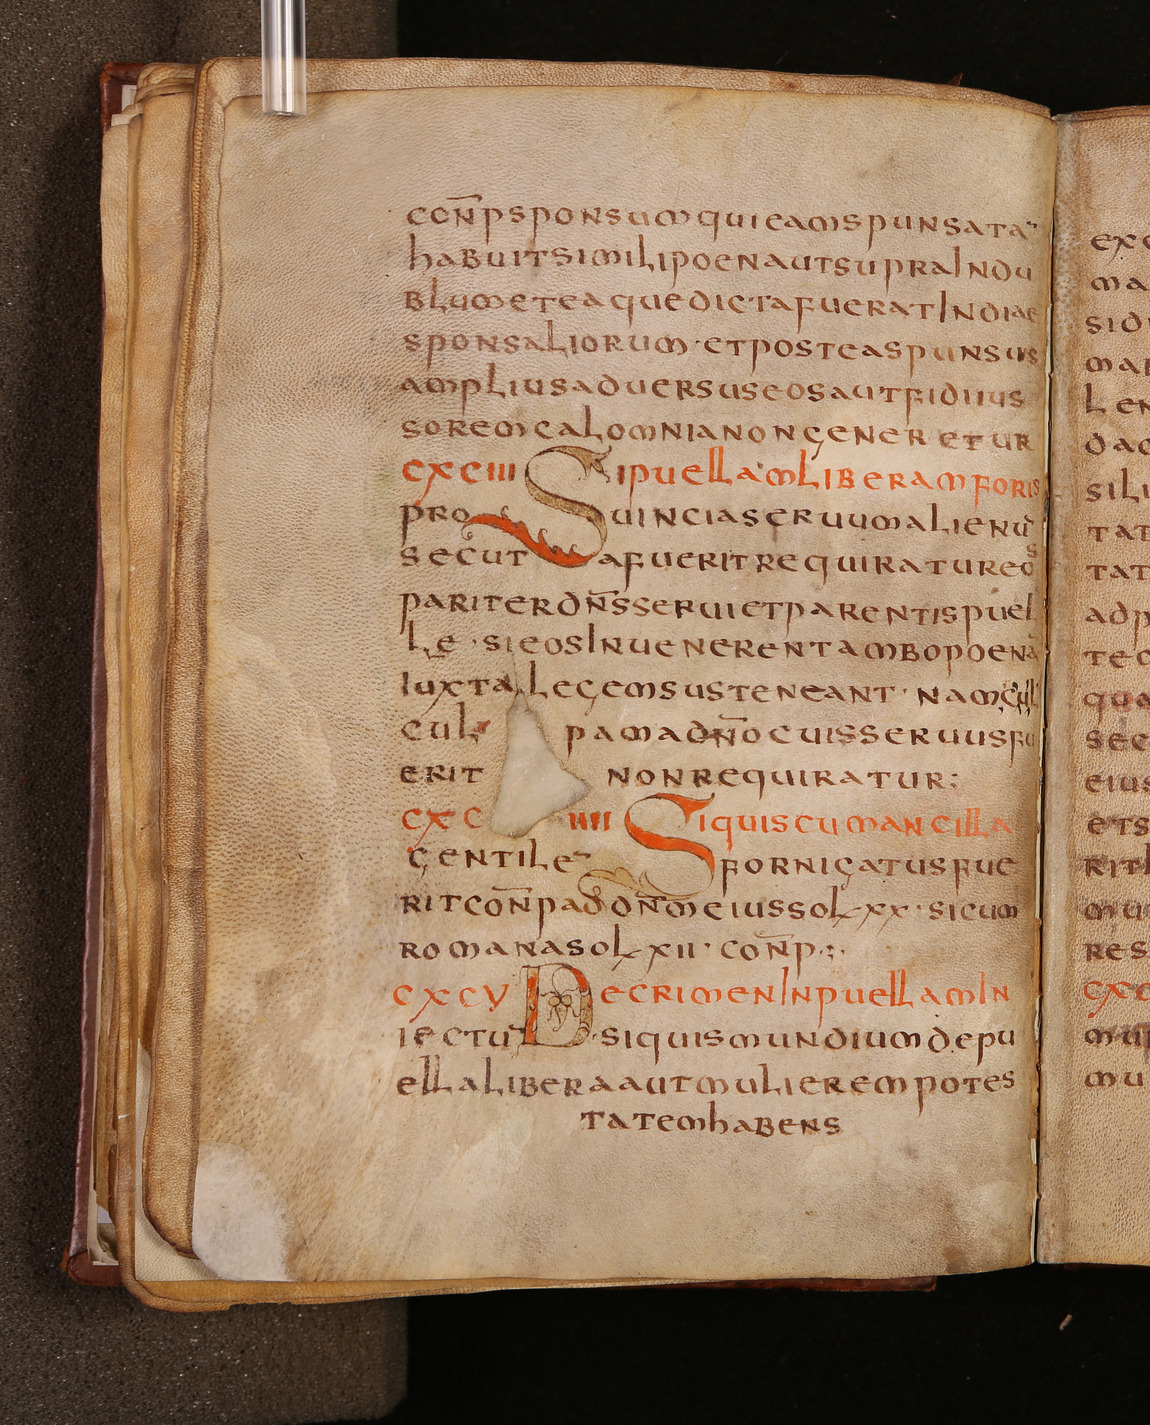 con̅p sponsum qui eam spunsata
habuit simili poena ut supra indu
blum et ea que dicta fuerat in diae
sponsaliorum · et postea spunsus
amplius aduersus eos aut fidiius
sorem calomnia non generetur
cxciii Si puellam liberam foris
prouincia seruum alienu̅
secuta fuerit requiratur eos
pariter dn̅s serui et parentis puel
le · si eos inuenerent ambo poena̅
iuxta legem susteneant · nam
cul pam ad n̅ocuis seruus fu
erit non requiratur:
cxc iiii Si quis cum ancilla
gentile fornicatus fue
rit con̅p ad dn̅m eius sol xx · si cum
romana sol xii · con̅p :·
cxcv De crimen in puellam in
iectu̅ · si quis mundium de pu
ella libera aut mulierem potes
tatem habens
exc
ma
sid
mar
len
dac
sili
tat
tat
adp
tec
qua
sec
eius
et s
rit
mu
res
cxc
mu
mu